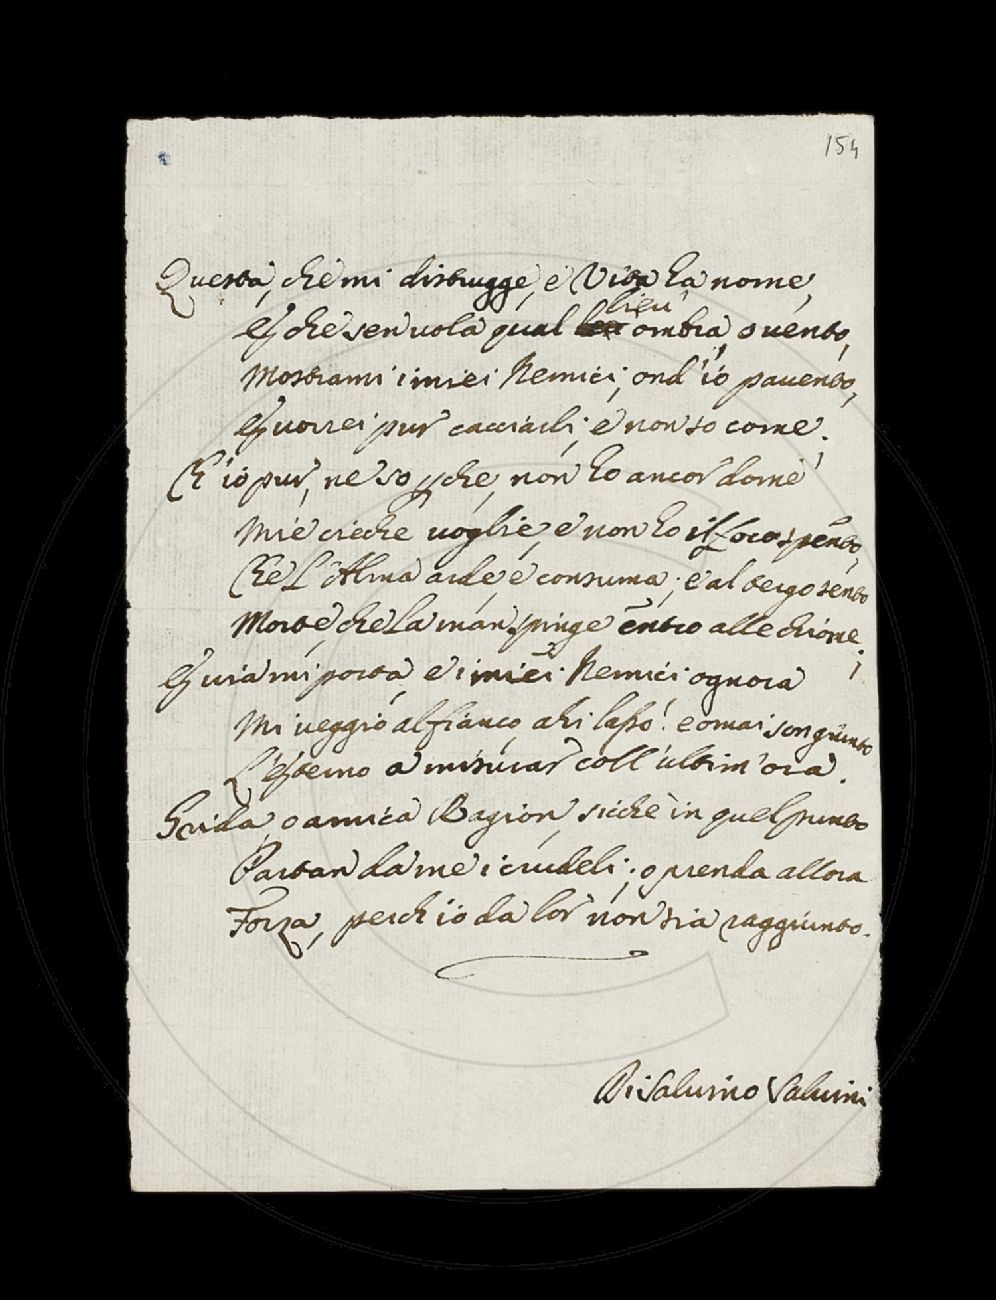 154
Questa, che mi distrugge, e Vita ha nome,
E che sen vola qual lieu' ombra, o vento,
Mostrami i miei Nemici, ond' io pavento,
E vorrei pur cacciarli, e non so come.
Ch' io pur, ne so, che, non ho ancor dome
Mie cieche voglie, e non ho il foco spento,
Che L'Alma arde, e consuma; e al tergo sento
Morte, che La man spinge entro alle chiome;
E via mi porta, e i miei Nemici ognora
Mi veggio al fianco, ahi lasso! e omai son giunto
L'estremo a misurar coll' ultim' ora.
Grida, o amica Ragion, sicchè in quel punto
Partan da me i crudeli; o prenda allora
Forza, perch' io da lor non sia raggiunto.
Di Salvino Salvini